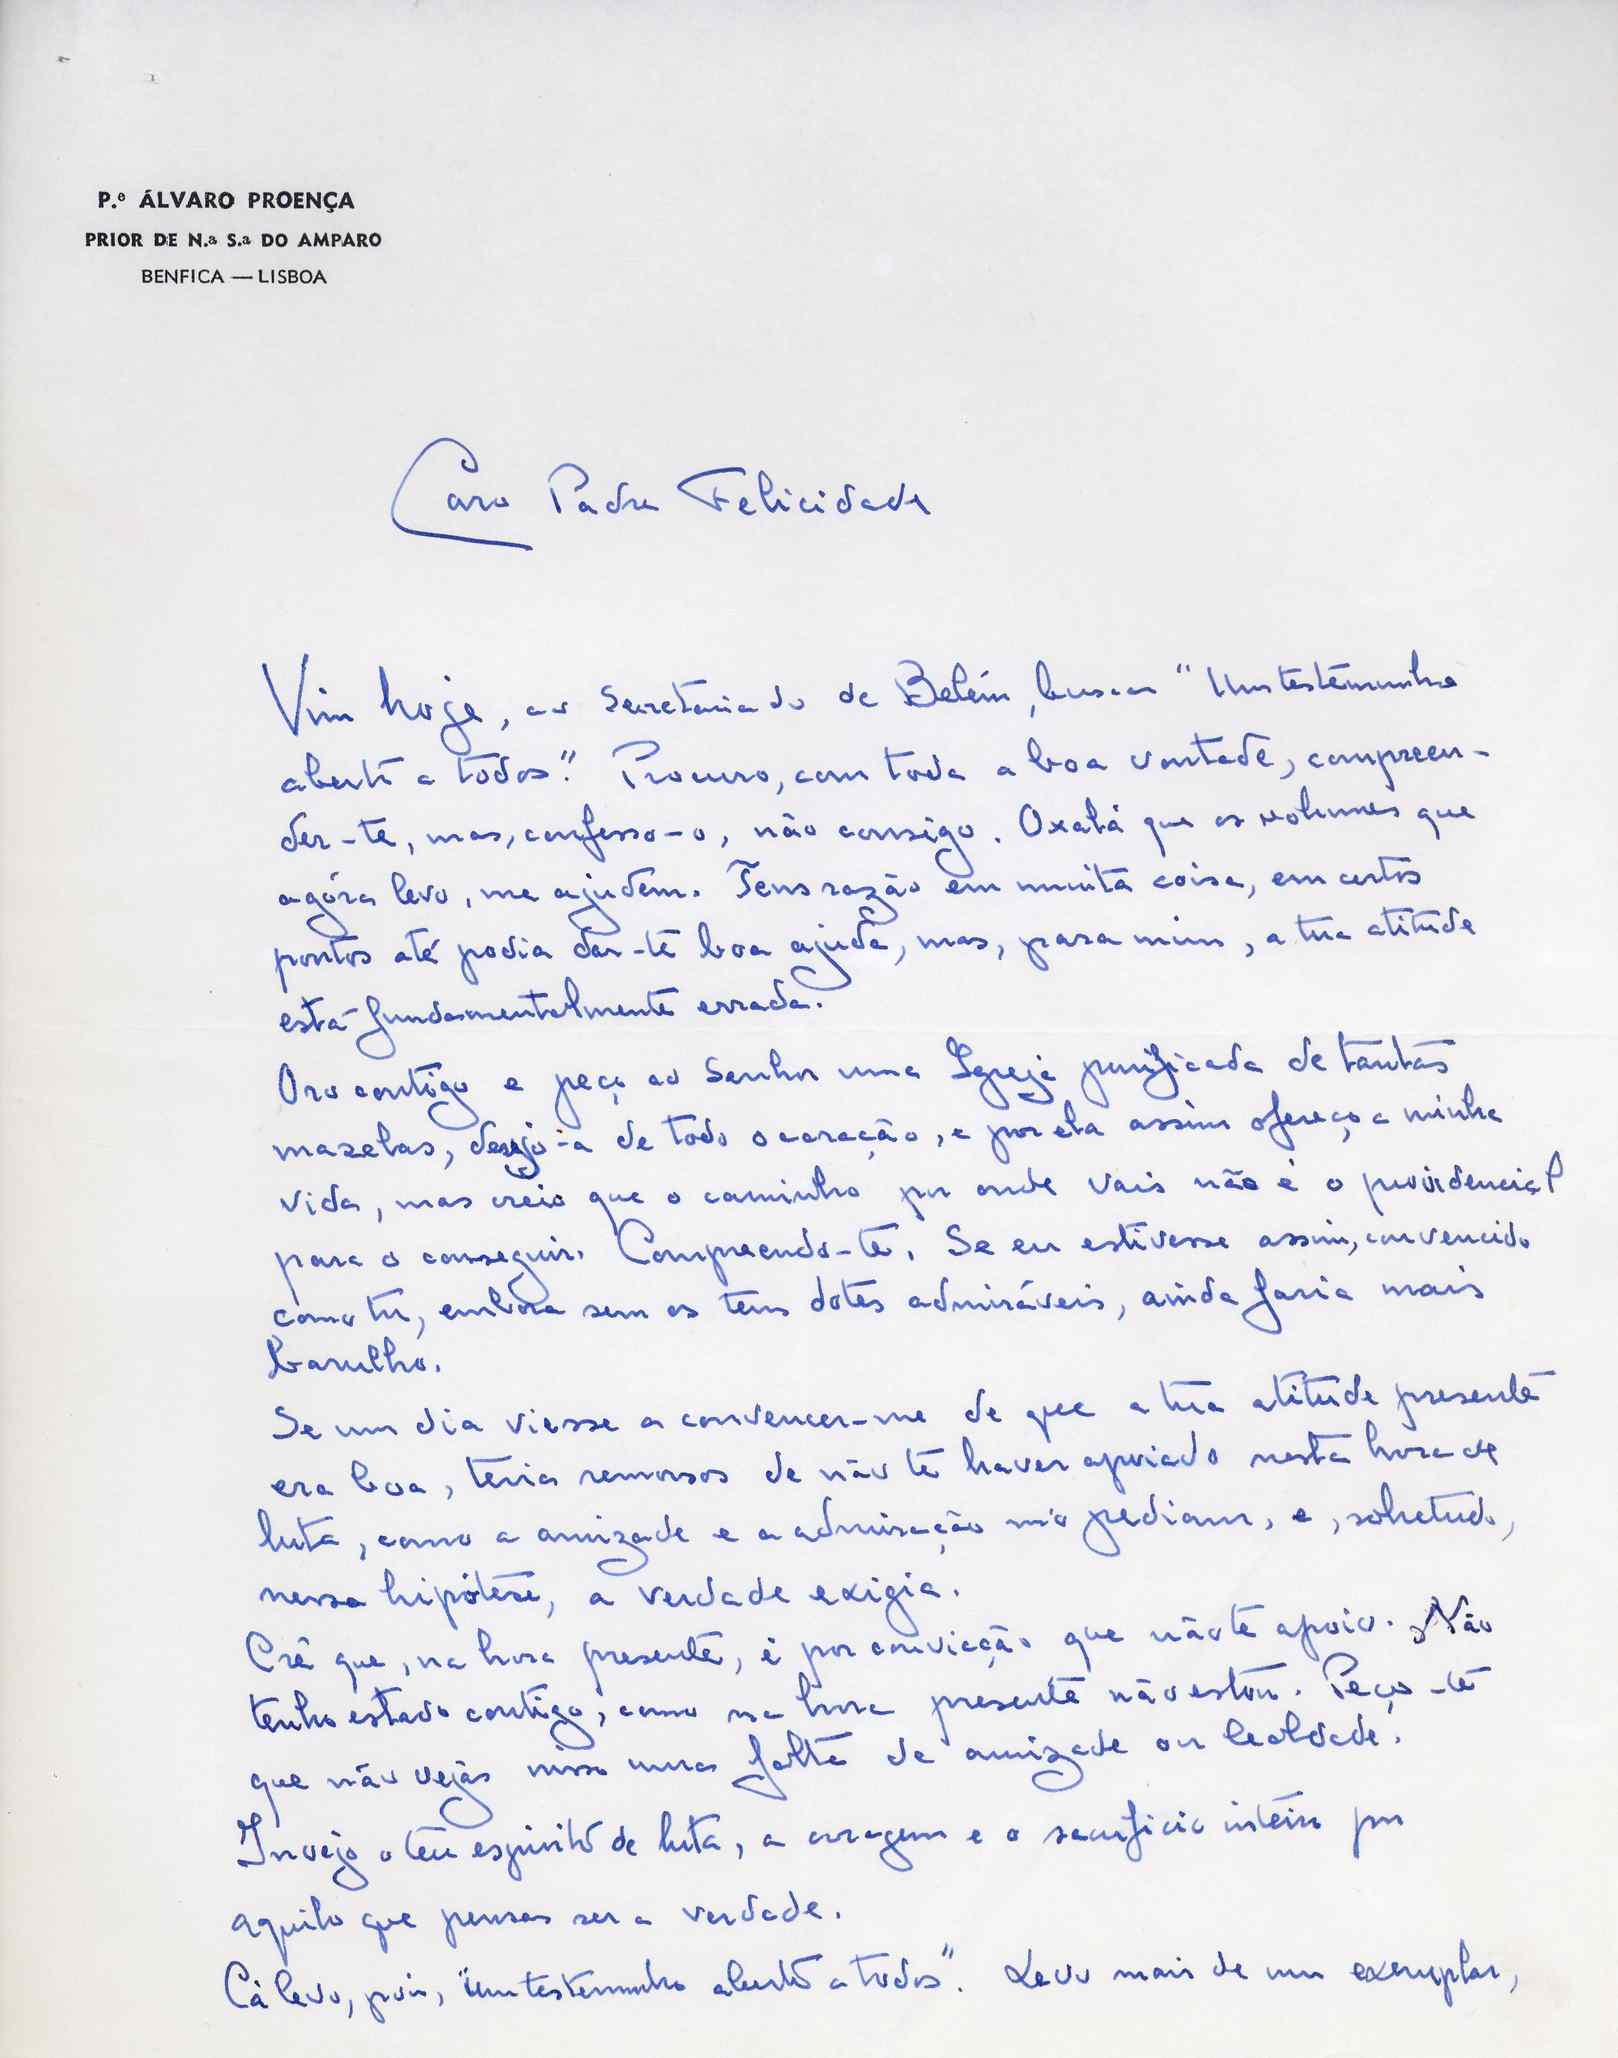 P.e ÁLVARO PROENÇA
PRIOR DE N.a S.a DO AMPARO
BENFICA — LISBOA
Caro Padre Felicidade
Vim hoje, ao Secretariado de Belém, buscar "Um testemunho
aberto a todos". Procuro, com toda a boa vontade, compreen-
der-te, mas, confesso-o, não consigo. Oxalá que os volumes que
agóra levo, me ajudem. Tens razão em muita coisa, em certos
pontos até podia dar-te boa ajuda, mas, para mim, a tua atitude
está fundamentalmente errada.
Oro contigo e peço ao Senhor uma Igreja purificada de tantas
mazelas, desejo-a de todo o coração, e por ela assim ofereço a minha
vida, mas creio que o caminho por onde vais não é o providencial
para o conseguir. Compreendo-te. Se eu estivesse assim, convencido
como tu, embora sem os teus dotes admiráveis, ainda faria mais
barulho.
Se um dia viesse a convencer-me de que a tua atitude presente
era boa, teria remorsos de não te haver apoiado nesta hora de
luta, como a amizade e a admiração mo pediam, e, sobretudo,
nessa hipótese, a verdade exigia.
Crê que, na hora presente, é por convicção que não te apoio. Não
tenho estado contigo, como na hora presente não estou. Peço-te
que não vejas nisso uma falta de amizade ou lealdade.
Invejo o teu espirito de luta, a coragem e o sacrificio inteiro por
aquilo que pensas ser a verdade.
Cá levo, pois, "Um testemunho aberto a todos". Levo mais de um exemplar,